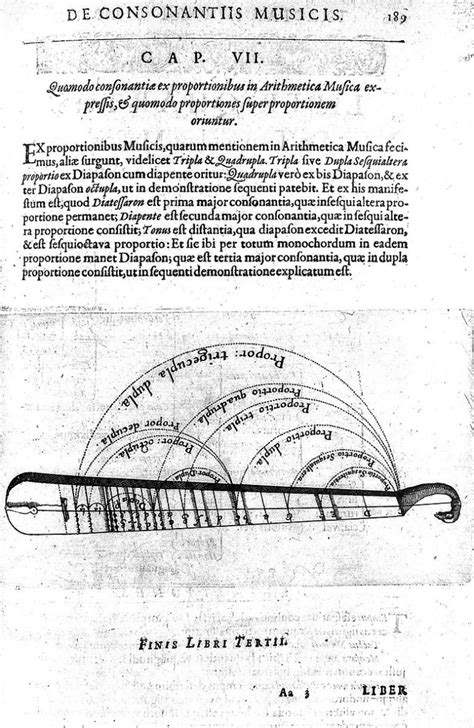 DE CONSONANTIIS MUSICIS. 189
CAP. VII.
Quomodo consonantiæ ex proportionibus in Arithmetica Musica ex-
pressis, & quomodo proportiones super proportionem
oriuntur.
EX proportionibus Musicis, quarum mentionem in Arithmetica Musica feci-
mus, aliæ surgunt, videlicet Tripla & Quadrupla. Tripla sive Dupla Sesquialtera
proportio ex Diapason cum diapente oritur: Quadrupla verò ex bis Diapason, & ex
ter Diapason octupla, ut in demonstratione sequenti patebit. Et ex his manife-
stum est, quod Diatessaron est prima major consonantia, quæ in sesquialtera pro-
portione permanet; Diapente est secunda major consonantia, quæ in sesquialte-
ra proportione consistit; Tonus est distantia, qua diapason excedit Diatessaron,
& est sesquioctava proportio: Et sic ibi per totum monochordum in eadem
proportione manet Diapason; quæ est tertia major consonantia, quæ in dupla
proportione consistit, ut in sequenti demonstratione explicatum est.
Propor: trigecupla dupla.
Propor decupla dupla.
Propor: octupla.
Propor Dupla
Proportio quadrupla.
Proportio tripla.
Proportio dupla.
Proportio Sesquialtera
Proportio Sesquitertia
FINIS LIBRI TERTII.
Aa 3 LIBER